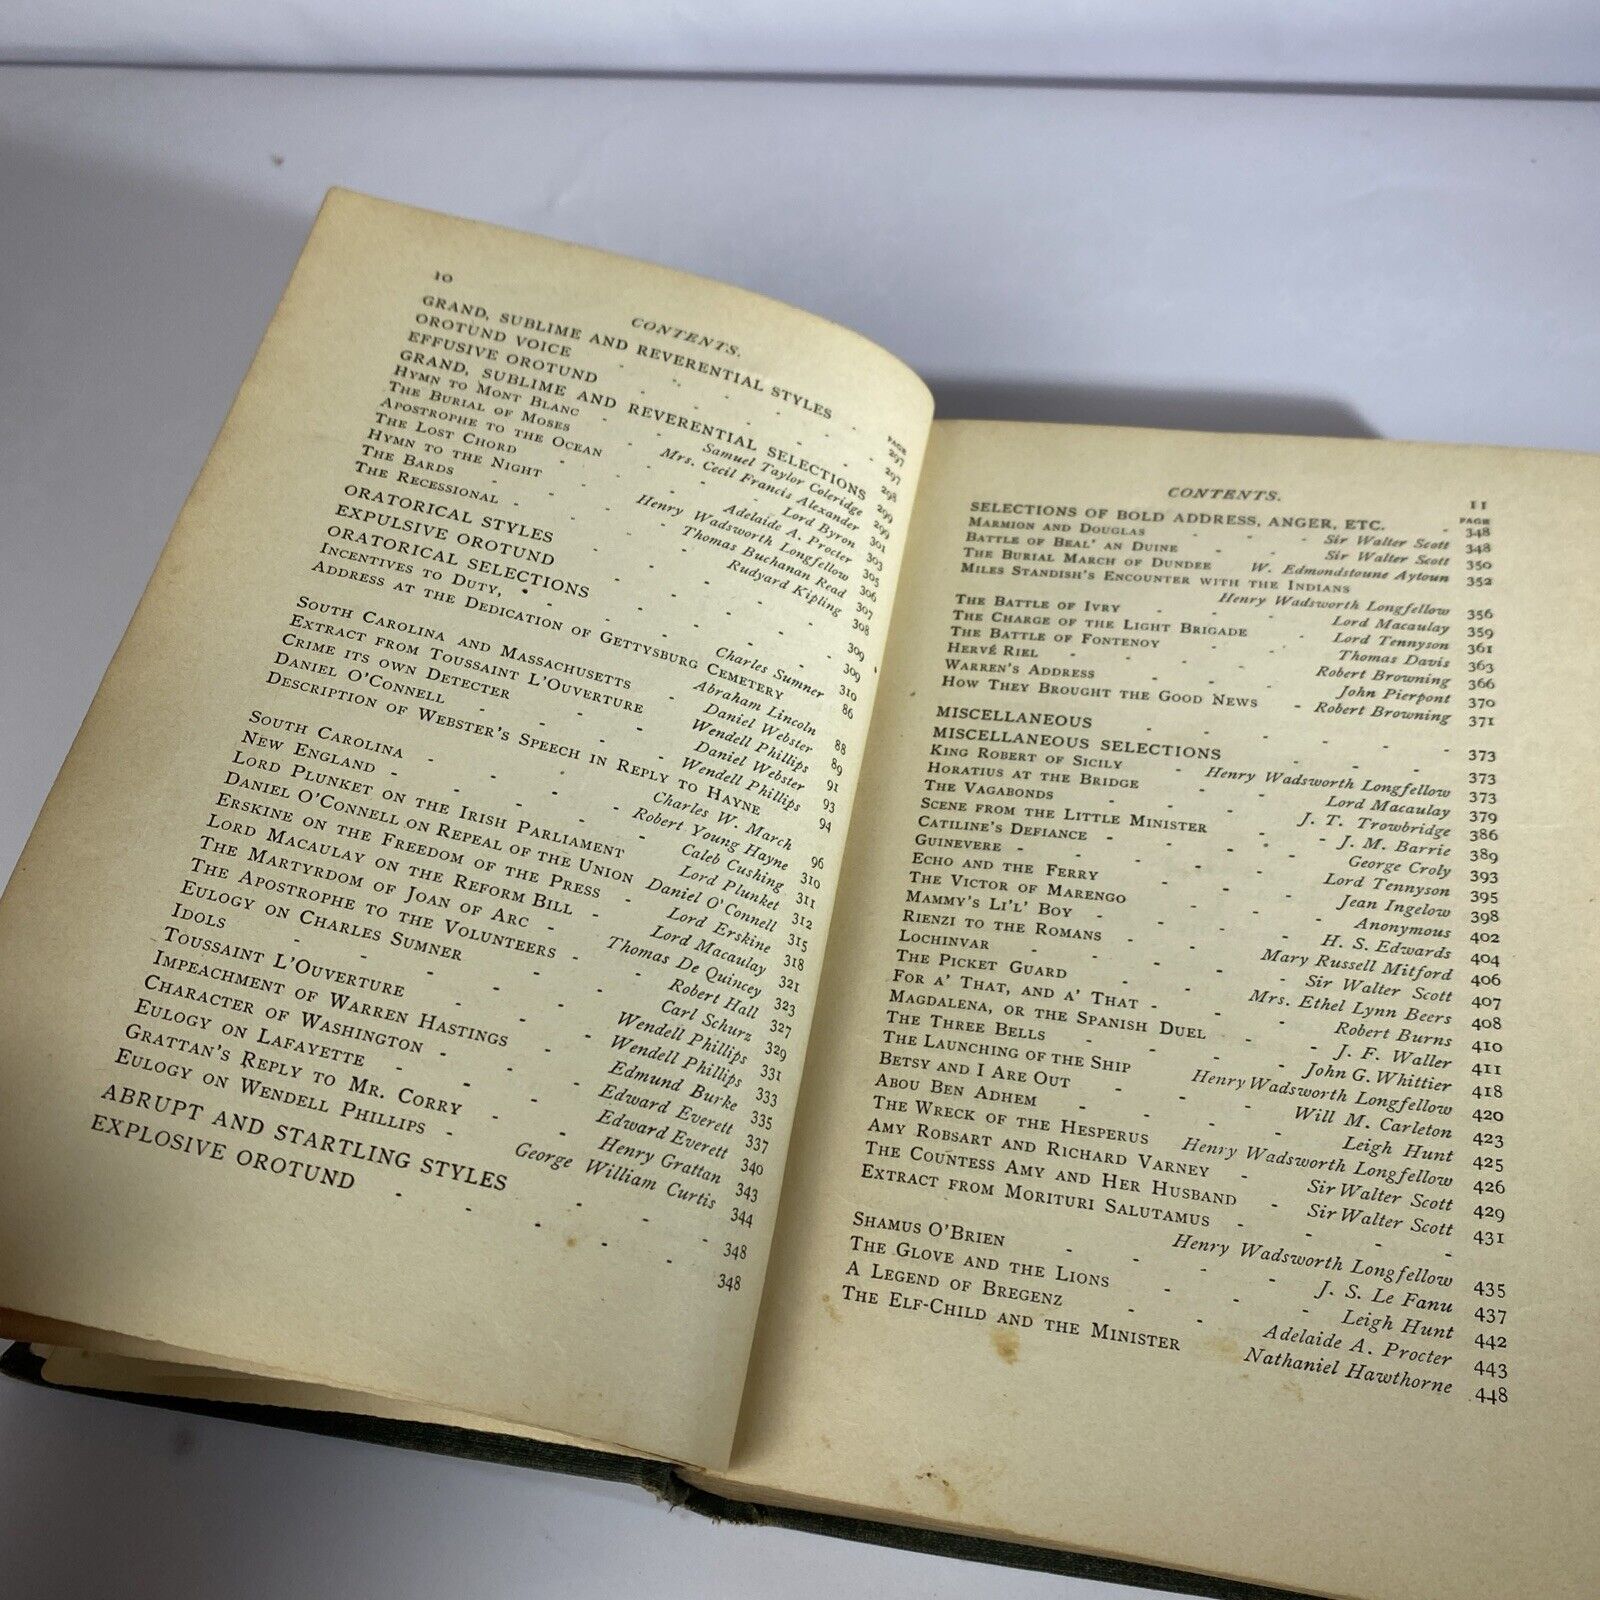 10
CONTENTS.
PAGE
GRAND, SUBLIME AND REVERENTIAL STYLES - 297
OROTUND VOICE - - - - 297
EFFUSIVE OROTUND - - - - 298
GRAND, SUBLIME AND REVERENTIAL SELECTIONS 299
HYMN TO MONT BLANC - - Samuel Taylor Coleridge 299
THE BURIAL OF MOSES - Mrs. Cecil Francis Alexander 301
APOSTROPHE TO THE OCEAN - - - Lord Byron 303
THE LOST CHORD - - - Adelaide A. Procter 305
HYMN TO THE NIGHT - Henry Wadsworth Longfellow 306
THE BARDS - - - Thomas Buchanan Read 307
THE RECESSIONAL - - - - Rudyard Kipling 308
ORATORICAL STYLES - - - - 309
EXPULSIVE OROTUND - - - - 309
ORATORICAL SELECTIONS - - - - 310
INCENTIVES TO DUTY, - - - Charles Sumner
ADDRESS AT THE DEDICATION OF GETTYSBURG CEMETERY
Abraham Lincoln 86
SOUTH CAROLINA AND MASSACHUSETTS - Daniel Webster 88
EXTRACT FROM TOUSSAINT L'OUVERTURE - Wendell Phillips 89
CRIME ITS OWN DETECTER - - - Daniel Webster 91
DANIEL O'CONNELL - - - - Wendell Phillips 93
DESCRIPTION OF WEBSTER'S SPEECH IN REPLY TO HAYNE 94
Charles W. March
SOUTH CAROLINA - - - - Robert Young Hayne 96
NEW ENGLAND - - - - Caleb Cushing 310
LORD PLUNKET ON THE IRISH PARLIAMENT Lord Plunket 311
DANIEL O'CONNELL ON REPEAL OF THE UNION Daniel O'Connell 312
ERSKINE ON THE FREEDOM OF THE PRESS - Lord Erskine 315
LORD MACAULAY ON THE REFORM BILL - Lord Macaulay 318
THE MARTYRDOM OF JOAN OF ARC - Thomas De Quincey 321
THE APOSTROPHE TO THE VOLUNTEERS - Robert Hall 323
EULOGY ON CHARLES SUMNER - - Carl Schurz 327
IDOLS - - - - Wendell Phillips 329
TOUSSAINT L'OUVERTURE - - - Wendell Phillips 331
IMPEACHMENT OF WARREN HASTINGS - Edmund Burke 333
CHARACTER OF WASHINGTON - - Edward Everett 335
EULOGY ON LAFAYETTE - - - Edward Everett 337
GRATTAN'S REPLY TO MR. CORRY - - Henry Grattan 340
EULOGY ON WENDELL PHILLIPS - George William Curtis 343
344
ABRUPT AND STARTLING STYLES - - - 348
EXPLOSIVE OROTUND - - - - - 348
CONTENTS. 11
PAGE
SELECTIONS OF BOLD ADDRESS, ANGER, ETC. - 348
MARMION AND DOUGLAS - - - Sir Walter Scott 348
BATTLE OF BEAL' AN DUINE - - Sir Walter Scott 350
THE BURIAL MARCH OF DUNDEE W. Edmondstoune Aytoun 352
MILES STANDISH'S ENCOUNTER WITH THE INDIANS
Henry Wadsworth Longfellow 356
THE BATTLE OF IVRY - - - Lord Macaulay 359
THE CHARGE OF THE LIGHT BRIGADE - Lord Tennyson 361
THE BATTLE OF FONTENOY - - - Thomas Davis 363
HERVÉ RIEL - - - - Robert Browning 366
WARREN'S ADDRESS - - - John Pierpont 370
HOW THEY BROUGHT THE GOOD NEWS - Robert Browning 371
MISCELLANEOUS - - - - - 373
MISCELLANEOUS SELECTIONS - - - 373
KING ROBERT OF SICILY - Henry Wadsworth Longfellow 373
HORATIUS AT THE BRIDGE - - - Lord Macaulay 379
THE VAGABONDS - - - - J. T. Trowbridge 386
SCENE FROM THE LITTLE MINISTER - - J. M. Barrie 389
CATILINE'S DEFIANCE - - - - George Croly 393
GUINEVERE - - - - - Lord Tennyson 395
ECHO AND THE FERRY - - - Jean Ingelow 398
THE VICTOR OF MARENGO - - - Anonymous 402
MAMMY'S LI'L' BOY - - - - H. S. Edwards 404
RIENZI TO THE ROMANS - - Mary Russell Mitford 406
LOCHINVAR - - - - Sir Walter Scott 407
THE PICKET GUARD - - - Mrs. Ethel Lynn Beers 408
FOR A' THAT, AND A' THAT - - - Robert Burns 410
MAGDALENA, OR THE SPANISH DUEL - - J. F. Waller 411
THE THREE BELLS - - - - John G. Whittier 418
THE LAUNCHING OF THE SHIP Henry Wadsworth Longfellow 420
BETSY AND I ARE OUT - - - Will M. Carleton 423
ABOU BEN ADHEM - - - - Leigh Hunt 425
THE WRECK OF THE HESPERUS Henry Wadsworth Longfellow 426
AMY ROBSART AND RICHARD VARNEY - Sir Walter Scott 429
THE COUNTESS AMY AND HER HUSBAND - Sir Walter Scott 431
EXTRACT FROM MORITURI SALUTAMUS - - - -
Henry Wadsworth Longfellow 435
SHAMUS O'BRIEN - - - - J. S. Le Fanu 437
THE GLOVE AND THE LIONS - - - Leigh Hunt 442
A LEGEND OF BREGENZ - - - Adelaide A. Procter 443
THE ELF-CHILD AND THE MINISTER Nathaniel Hawthorne 448